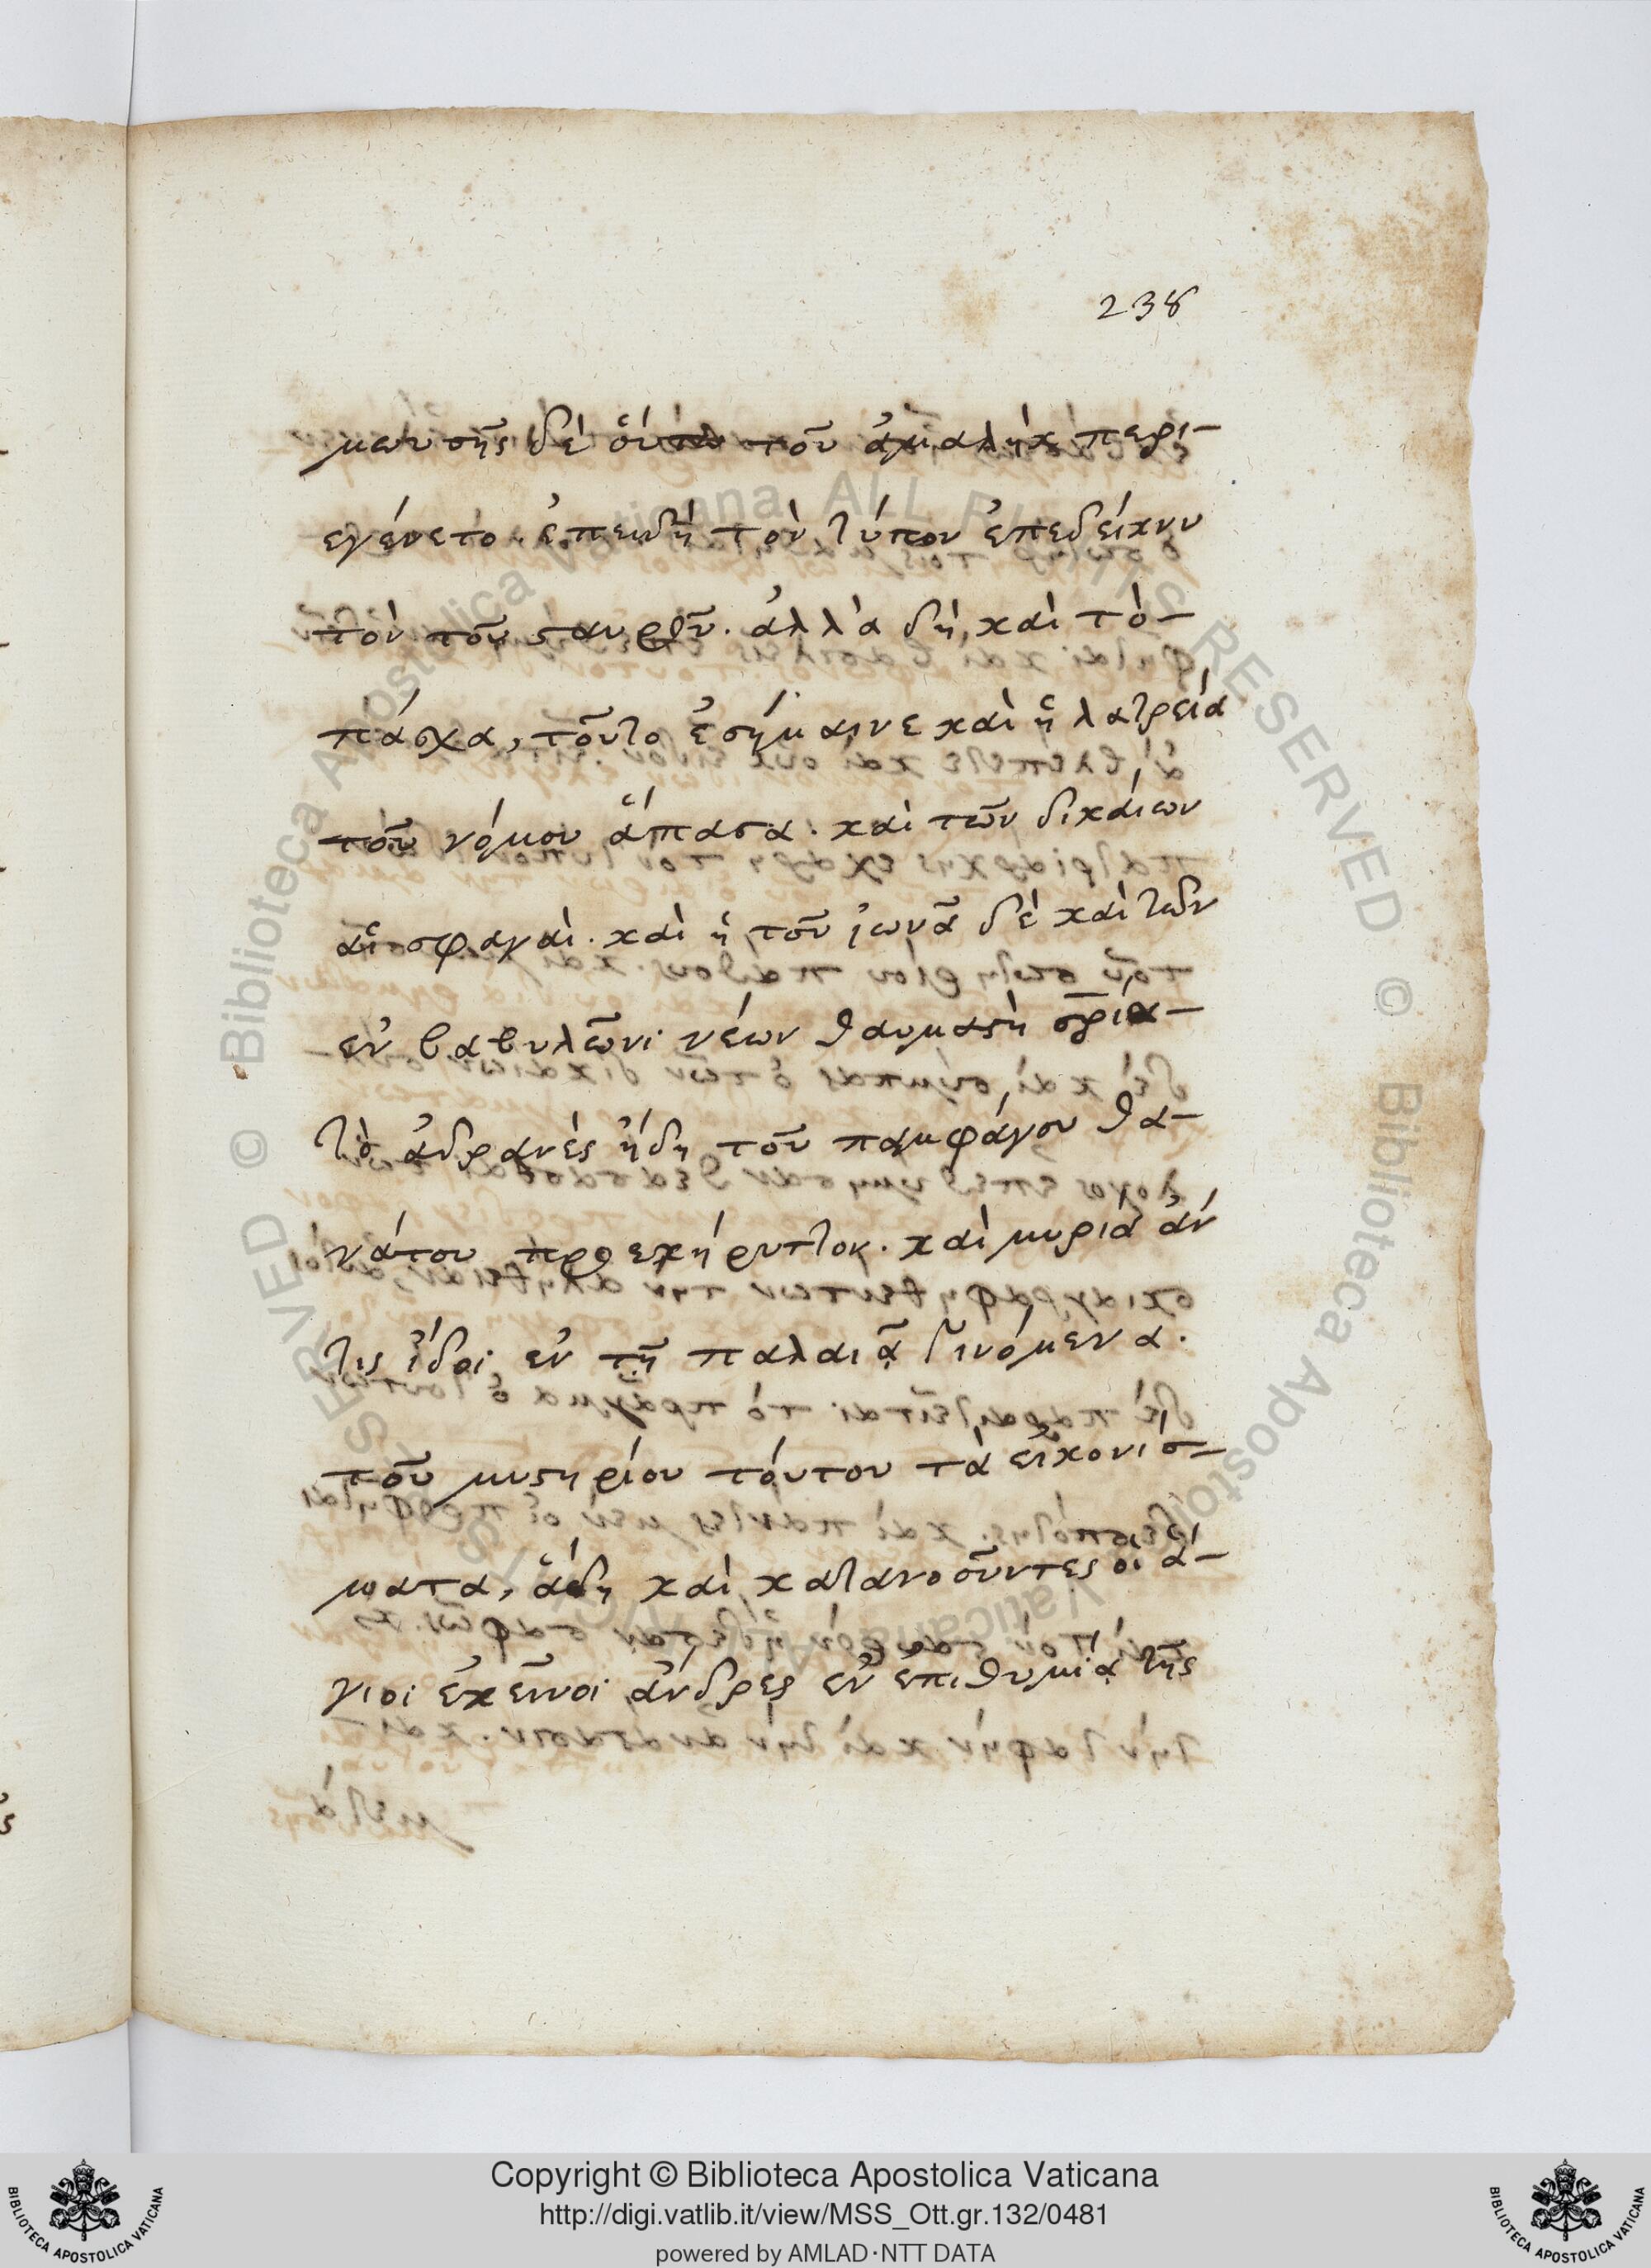 238
μωυσῆς δὲ οὕτω τοῦ ἀμαλὴκ περι-
εγένετο. ἐπειδὴ τὸν τύπον ἐπεδείκνυ
τὸν τοῦ σταυροῦ. ἀλλὰ δὴ καὶ τὸ-
πάσχα, τοῦτο ἐσήμαινε καὶ ἡ λατρεία
τοῦ νόμου ἅπασα. καὶ τῶν δικαίων
αἱ σφαγαὶ. καὶ ἡ τοῦ ἰωνᾶ δὲ καὶ τῶν
ἐν βαβυλῶνι νέων θαυμαστὴ σρία-
τὸ ἀδρανὲς ἤδη τοῦ παμφάγου θα-
νάτου προεκήρυττον. καὶ μυρία ἄν
τις ἴδοι ἐν τῇ παλαιᾷ γινόμενα.
τοῦ μυστηρίου τούτου τὰ εἰκονίσ-
ματα, ἅδη καὶ κατανοοῦντες οἱ ἅ-
γιοι ἐκεῖνοι ἄνδρες ἐν ἐπιθυμίᾳ τῆς
Copyright © Biblioteca Apostolica Vaticana
http://digi.vatlib.it/view/MSS_Ott.gr.132/0481
powered by AMLAD·NTT DATA
BIBLIOTECA APOSTOLICA VATICANA
BIBLIOTECA APOSTOLICA VATICANA